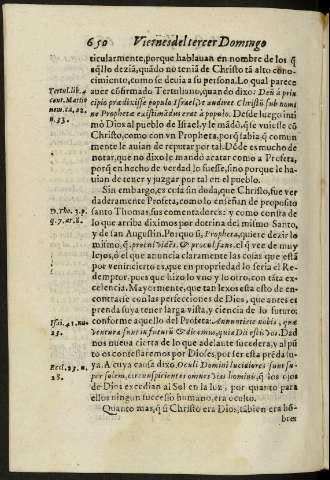 650 Viernes del tercer Domingo
ticularmente, porque hablauan en nombre de los q̃
aq̃llo dezia, quãdo no teniã de Christo tã alto cono-
cimiento, como se deuia a su persona. Lo qual parece
auer cõfirmado Tertuliano, quando dixo: Deũ à prin
cipio prædixisse populo Israel de audiret Christũ sub nomi
ne Prophetæ existimãdus erat à populo. Desde luego inti
mò Dios al pueblo de Israel, y le mãdò, q̃ se vuiesse cõ
Christo, como con vn Propheta, porq̃ sabia q̃ comun
mente le auian de reputar por tal. Dõde es mucho de
notar, que no dixo le mandò acatar como a Profeta,
porq̃ en hecho de verdad lo fuesse, sino porque le ha-
uian de tener y juzgar por tal en el pueblo.
Sin embargo, es cosa sin doda, que Christo, fue ver
daderamente Profeta, como lo enseñan de proposito
santo Thomas, sus comentadores: y como consta de
lo que arriba diximos por dotrina del mismo Santo,
y de san Augustin. Porque si, Propheta, quiere dezir lo
mismo, q̃ procul fans. el q̃ vee de muy
lejos, ò el que anuncia claramente las cosas que està
por venir: cierto es, que en propiedad lo seria el Re-
demptor, pues que hizo lo vno y lo otro, con tãta ex-
celencia. Mayormente, que tan lexos està esto de en-
contrarse con las persecciones de Dios, que antes es
prenda suya tener larga vista, y ciencia de lo futuro:
conforme aquello del Profeta: Annuntiate nobis, quæ
ventura sunt in futurũ & dicemus, quia Dii estis vos. Dad
nos nueva cierta de lo que adelante sucedera, y al pũ
to os confessaremos por Dioses, por ser esta prẽda su-
ya. A cuya causa dixo. Oculi Domini lucidiores sunt su-
per solem, circunspicientes omnes vias hominũ, q̃ los ojos
de Dios excedian al Sol en la luz, por quanto para
ellos ningun sucesso humano, era oculto.
Quanto mas, q̃ si Christo era Dios, tãbien era hõ-
bre:
Tertul. lib. 4
cont. Marcio
nem. ca. 22.
n. 33.
D. Tho. 3. p.
q. 7. ar. 8.
Isai. 41. nu.
23.
Eccl. 23. n.
28.